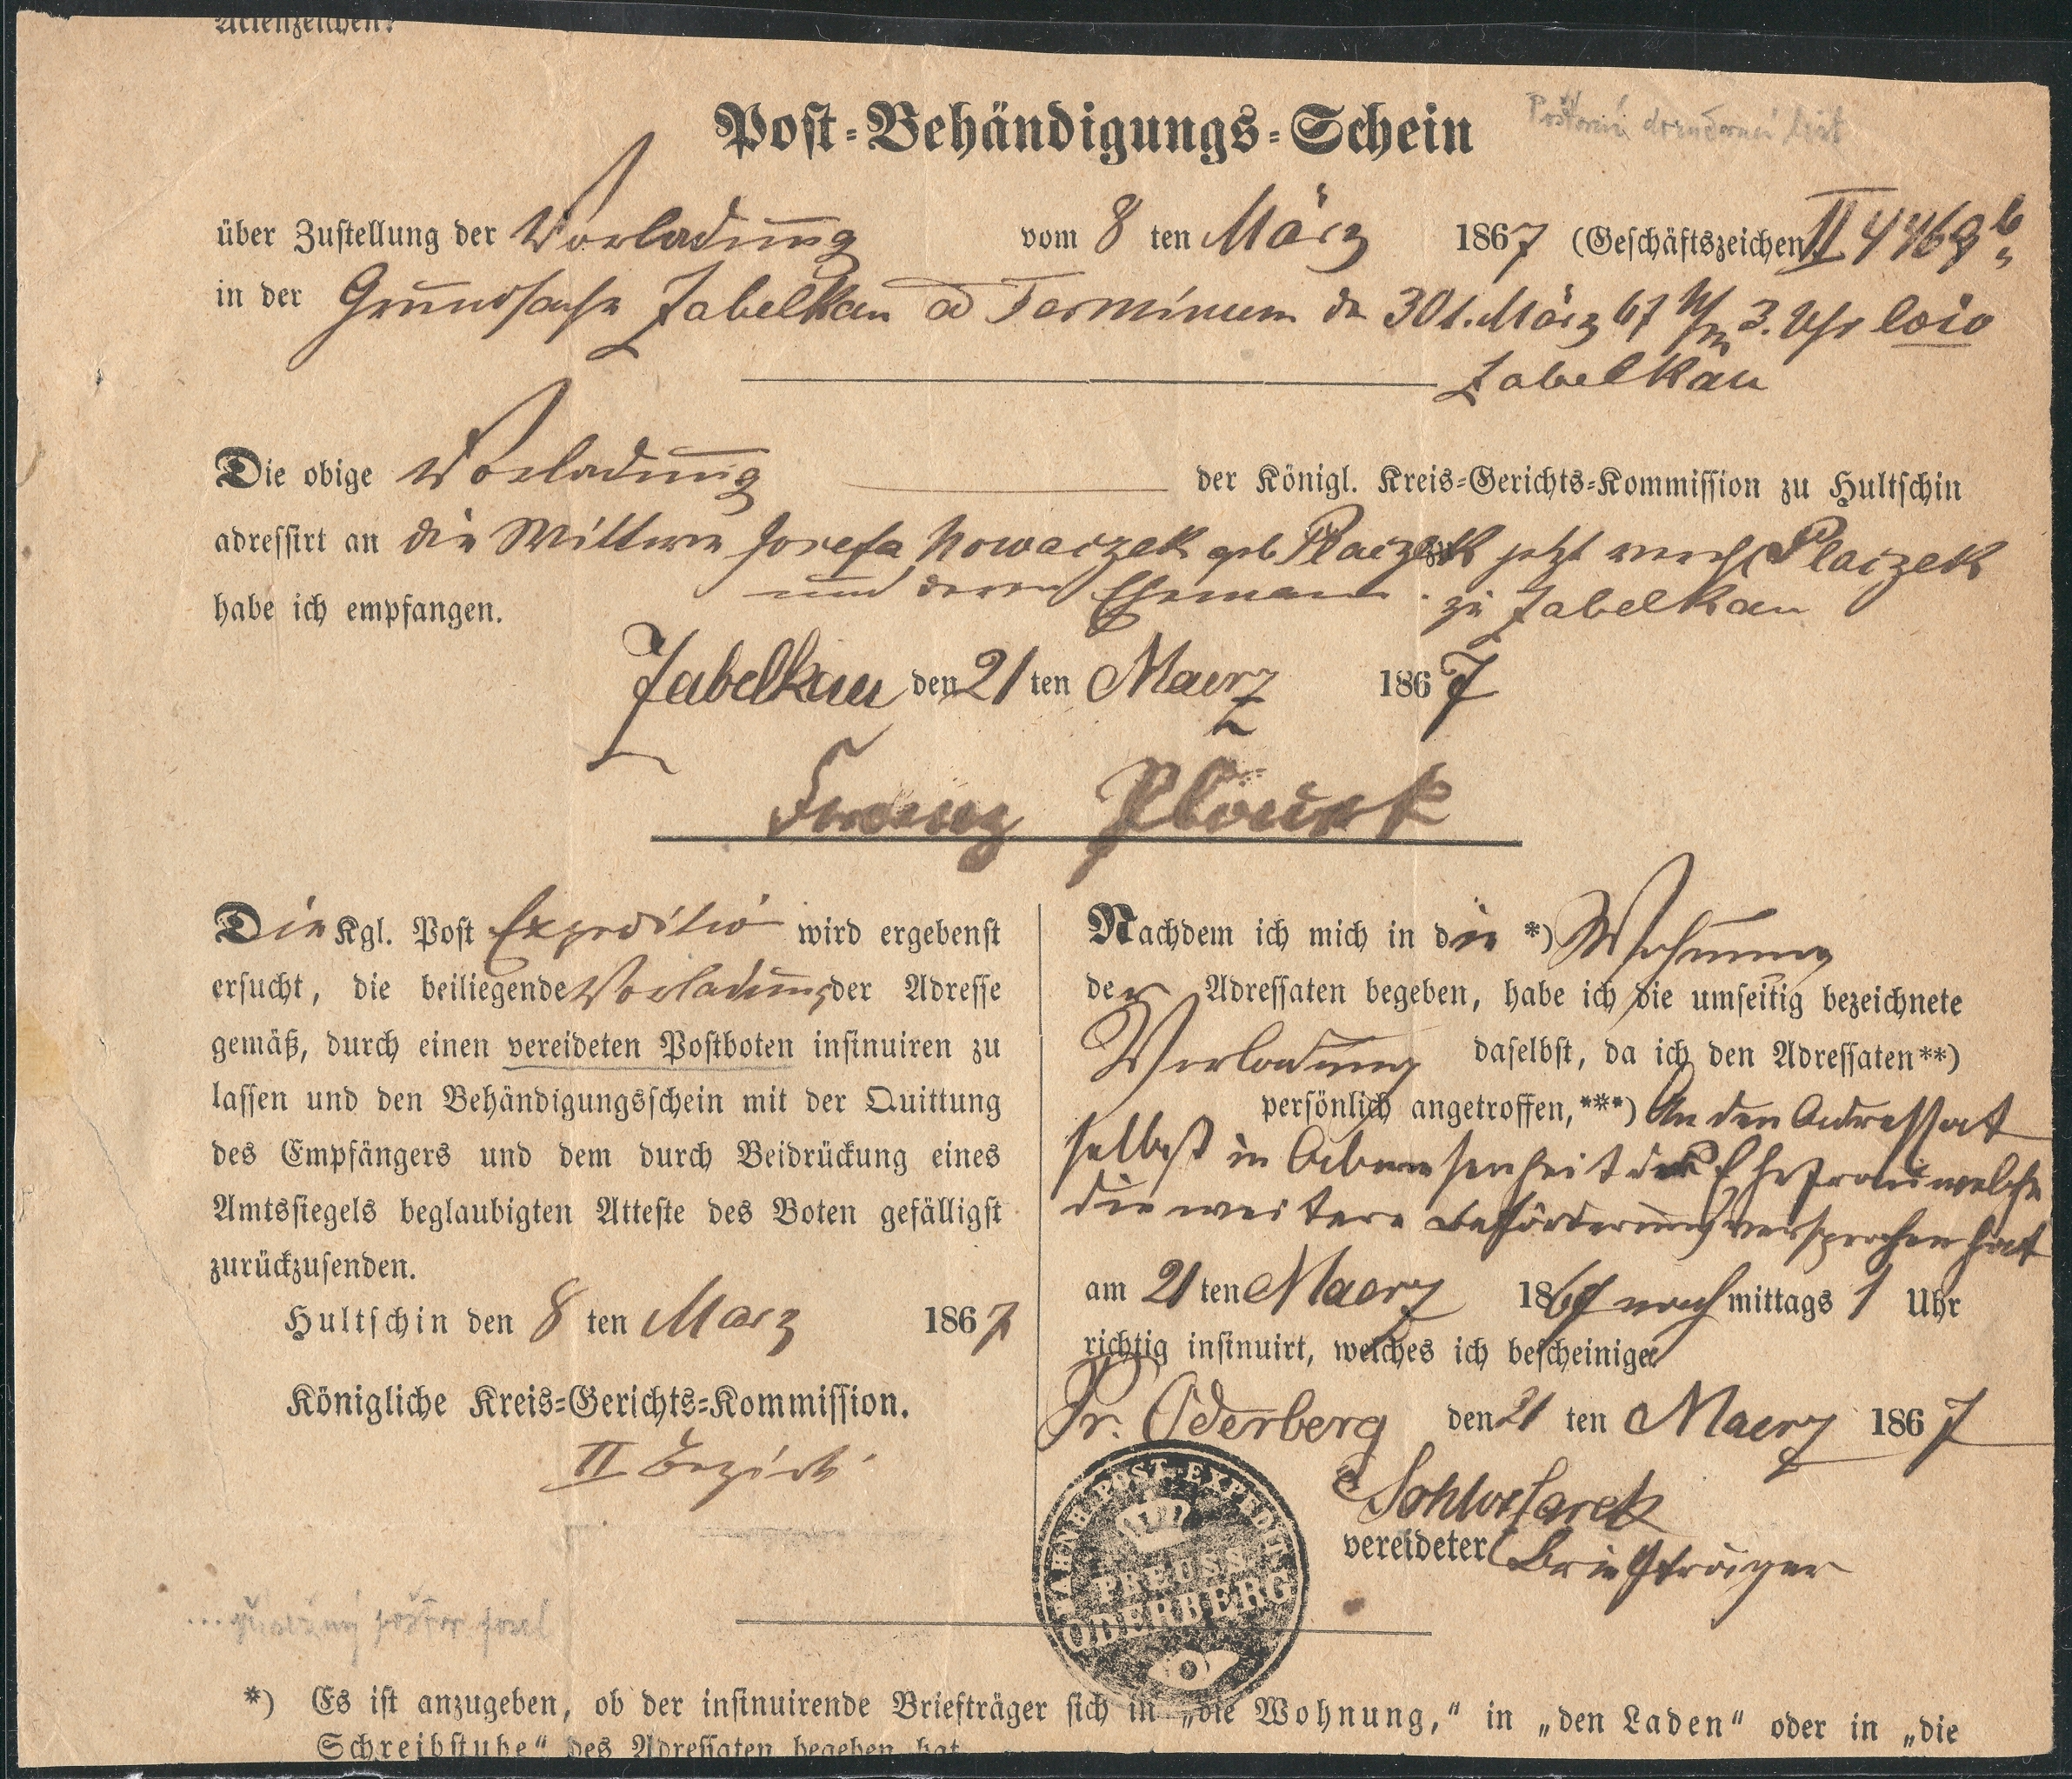 Aktenzeichen:
Post-Behändigungs-Schein
Poštovní doručovací list
über Zustellung der Vorladung vom 8 ten März 1867 (Geschäftszeichen II 4469 b
in der Grundsache Zabelkau ad Terminum den 30t. März 67 N/m 3. Uhr loco
Zabelkau
Die obige Vorladung der Königl. Kreis-Gerichts-Kommission zu Hultschin
adressirt an die Wittwe Josefa Nowaczek geb Placzek jetzt verehl Placzek
und deren Ehemann zu Zabelkau
habe ich empfangen.
Zabelkau den 21 ten Maerz 1867
Franz
Die Kgl. Post Expeditio wird ergebenst
ersucht, die beiliegende Vorladung der Adresse
gemäß, durch einen vereideten Postboten insinuiren zu
lassen und den Behändigungsschein mit der Quittung
des Empfängers und dem durch Beidrückung eines
Amtssiegels beglaubigten Atteste des Boten gefälligst
zurückzusenden.
Hultschin den 8 ten März 1867
Königliche Kreis-Gerichts-Kommission.
II Bezirk
Nachdem ich mich in die *) Wohnung
der Adressaten begeben, habe ich die umseitig bezeichnete
Vorladung daselbst, da ich den Adressaten**)
persönlich angetroffen,***) An den Adressat
selbst in Abwesenheit der Ehefrau welche
die weitere Beförderung versprochen hat
am 21 ten Maerz 1867 nachmittags 1 Uhr
richtig insinuirt, welches ich bescheinige
Pr. Oderberg den 21 ten Maerz 1867
vereideter Briefträger
BAHNH. POST-EXPEDIT.
PREUSS.
ODERBERG
*) Es ist anzugeben, ob der insinuirende Briefträger sich in „die Wohnung,“ in „den Laden“ oder in „die
Schreibstube“ des Adressaten begeben hat.